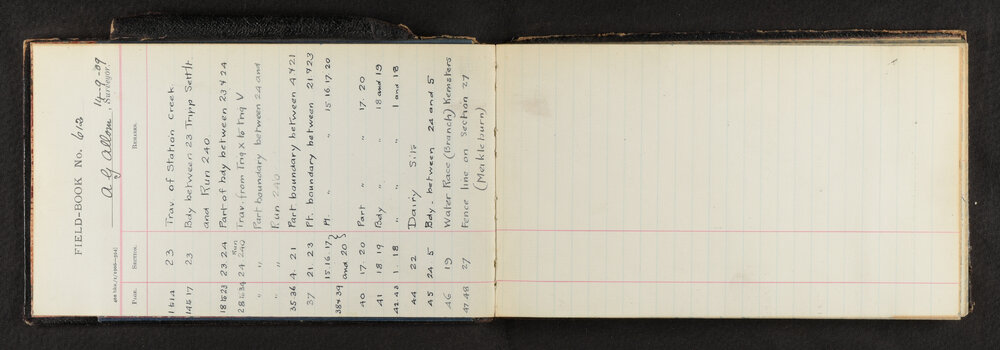 FIELD-BOOK No. 612
A G Allom 14-9-09, Surveyor.
PAGE. SECTION. REMARKS.
1 to 14 23 Trav. of Station Creek
14 to 17 23 Bdy between 23 Tripp Settlt
and Run 240
18 to 23 23 24 Part of bdy between 23 & 24
28 to 34 24 Run 240 Trav. from Trig X to Trig V
" " Part boundary between 24 and
" " Run 240
35 36 4. 21 Part boundary between 4 & 21
37 21 23 Pt. boundary between 21 & 23
38 & 39 15 16 17 and 20 Pt. " " 15 16. 17. 20
40 17. 20 Part " 17. 20
41 18. 19 Bdy " 18 and 19
42 43 1. 18 " " 1 and 18
44 22 Dairy Site
45 24 5 Bdy. between 24 and 5
46 19 Water Race (Branch) Kemsters
47 48 27 Fence line on Section 27
(Meikleburn)